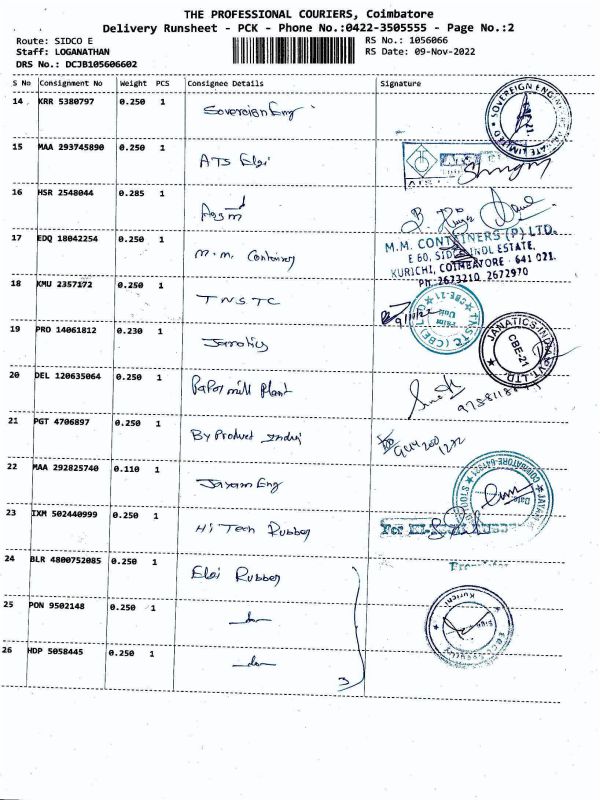 THE PROFESSIONAL COURIERS, Coimbatore
Delivery Runsheet - PCK - Phone No.:0422-3505555 - Page No.:2
Route: SIDCO E RS No.: 1056066
Staff: LOGANATHAN RS Date: 09-Nov-2022
DRS No.: DCJB105606602
S No Consignment No Weight PCS Consignee Details Signature
14 KRR 5380797 0.250 1 Sovereign Eng
15 MAA 293745890 0.250 1 ATS Elgi
16 HSR 2548044 0.285 1
17 EDQ 18042254 0.250 1 M.M. Containers
M.M. CONTAINERS (P) LTD.
E 60, SIDCO INDL ESTATE,
KURICHI, COIMBATORE - 641 021.
PH: 2673210, 2672970
18 KMU 2357172 0.250 1 TNSTC
19 PRO 14061812 0.230 1 Janatics
JANATICS INDIA PVT. LTD.
CBE-21
20 DEL 120635064 0.250 1 Paper mill Plant
21 PGT 4706897 0.250 1 By Product Indri
22 MAA 292825740 0.110 1 Jayam Eng
23 IXM 502440999 0.250 1 Hi Tech Rubber
24 BLR 4800752085 0.250 1 Elgi Rubber
25 PON 9502148 0.250 1 -do-
26 HDP 5058445 0.250 1 -do-